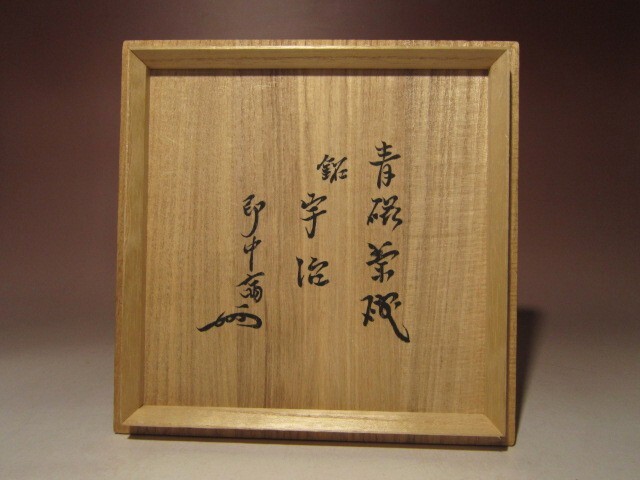 青磁茶碗
銘
宇治
即中斎